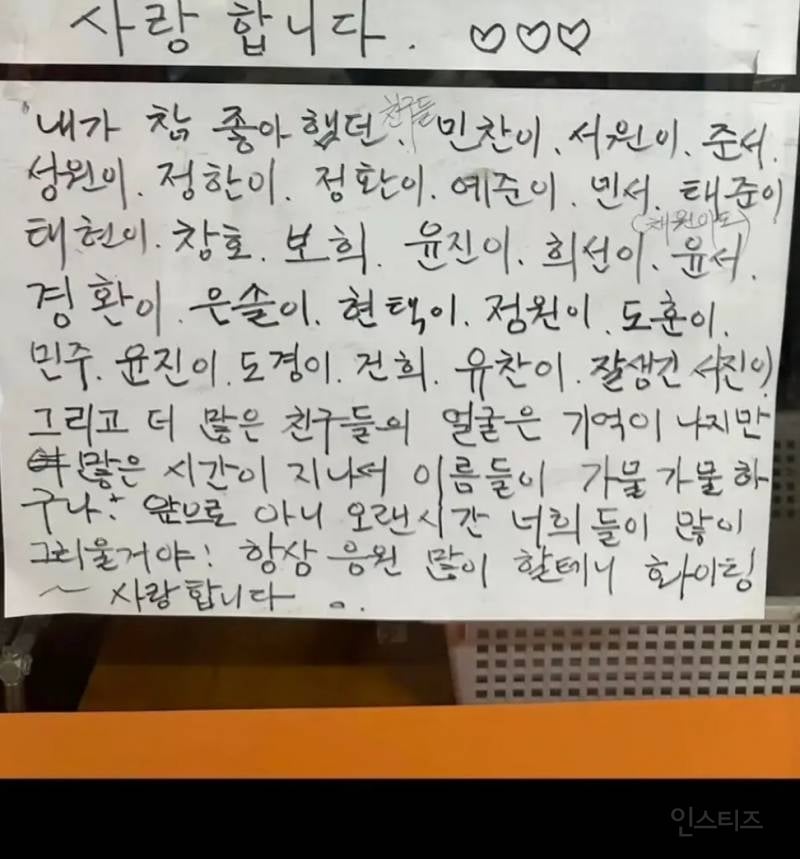 사랑합니다. ♡♡♡
내가 참 좋아했던 친구들 민찬이. 서원이. 준서.
성원이. 정한이. 정환이. 예준이. 민서. 태준이
(채원이도)
태현이. 창호. 보희. 윤진이. 희선이. 윤서.
경환이. 은솔이. 현택이. 정원이. 도훈이.
민주. 윤진이. 도경이. 건희. 유찬이. 잘생긴 서진이
그리고 더 많은 친구들의 얼굴은 기억이 나지만
많은 시간이 지나서 이름들이 가물가물하
구나! 앞으로 아니 오랜시간 너희들이 많이
그리울거야! 항상 응원 많이 할테니 화이팅
~ 사랑합니다
인스티즈